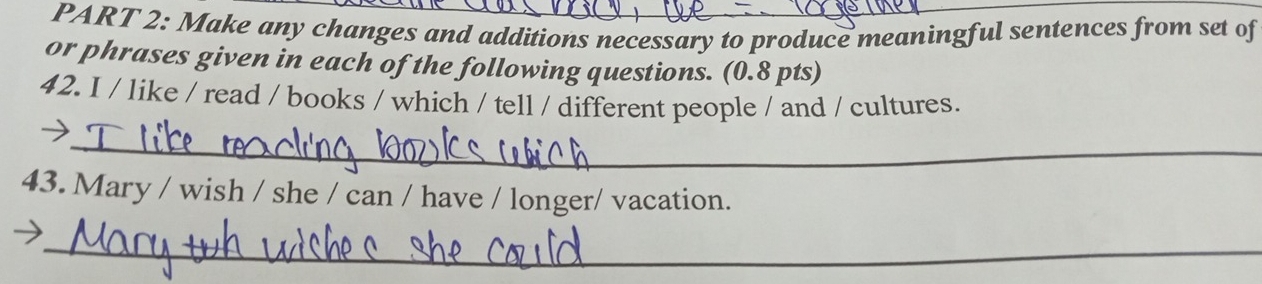 together
PART 2: Make any changes and additions necessary to produce meaningful sentences from set of
or phrases given in each of the following questions. (0.8 pts)
42. I / like / read / books / which / tell / different people / and / cultures.
→ I like reading books which
43. Mary / wish / she / can / have / longer/ vacation.
→ Mary wishes she could